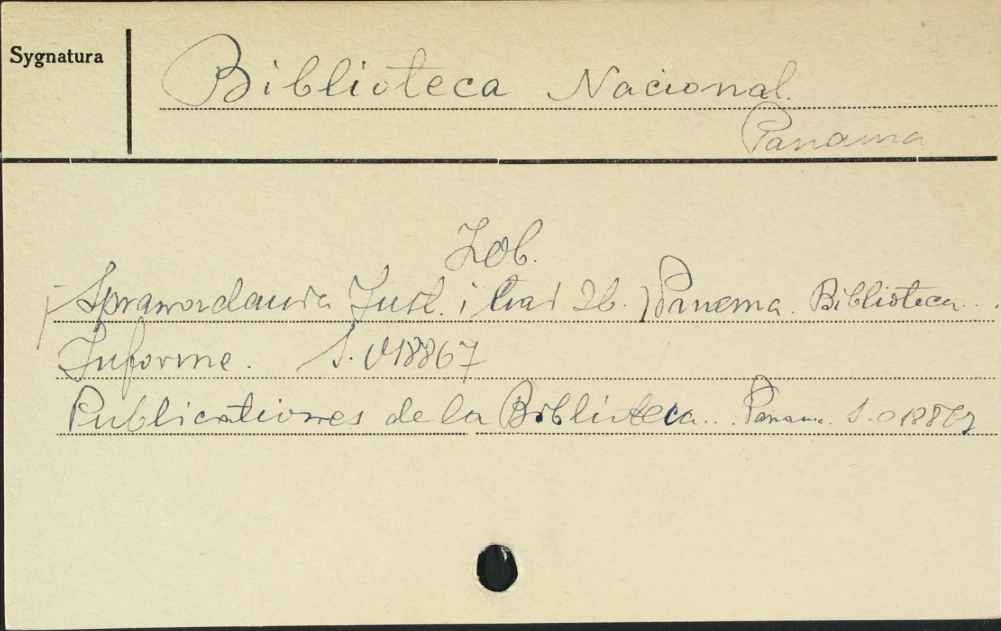 Sygnatura
Biblioteca Nacional.
Panama
Zob.
Sprawozdania Inst. i 26. Panama. Biblioteca...
Informe. S. 018867
Publicationes de la Biblioteca... Panama. S. 0